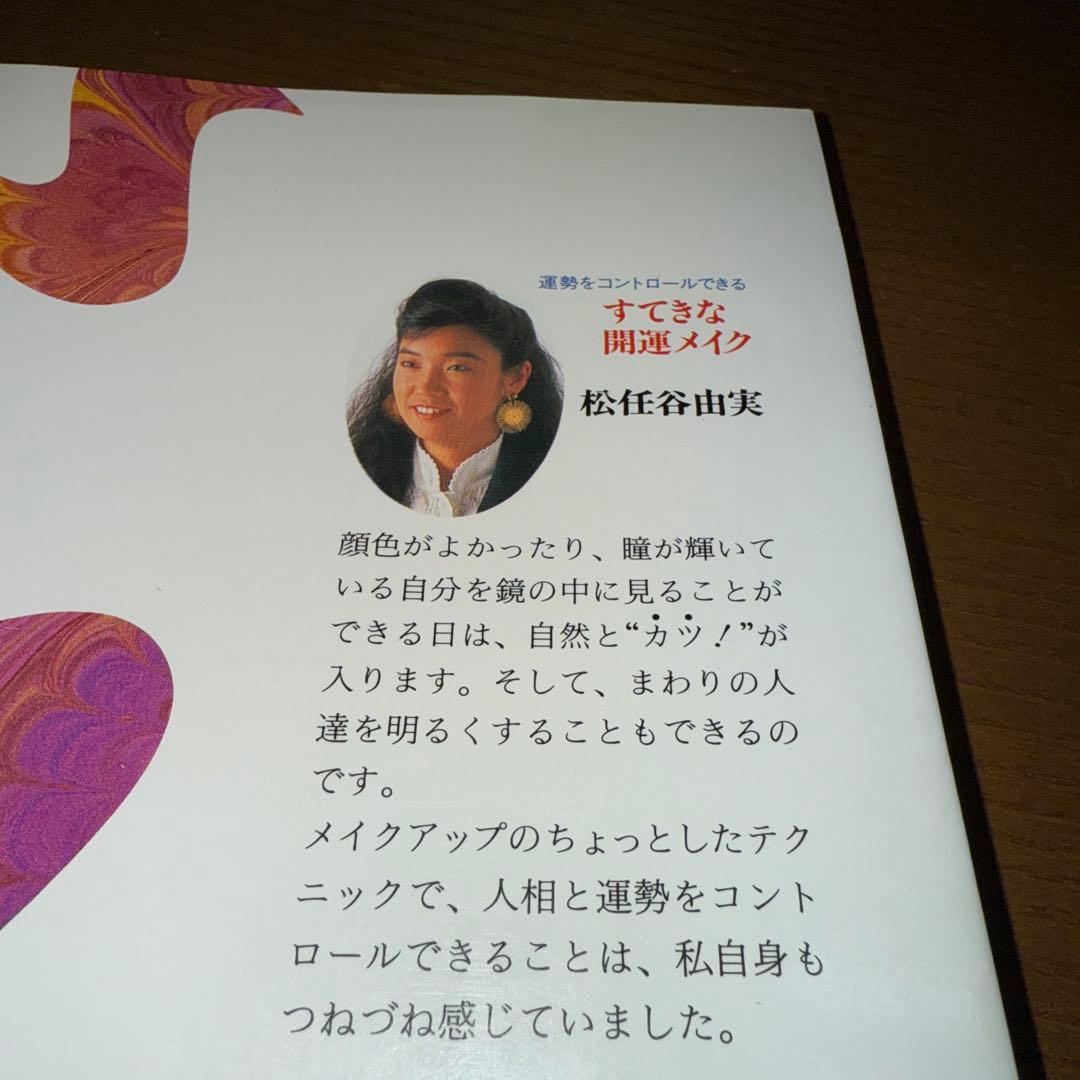 運勢をコントロールできる
すてきな
開運メイク
松任谷由実
顔色がよかったり、瞳が輝いて
いる自分を鏡の中に見ることが
できる日は、自然と“カツ！”が
入ります。そして、まわりの人
達を明るくすることもできるの
です。
メイクアップのちょっとしたテク
ニックで、人相と運勢をコント
ロールできることは、私自身も
つねづね感じていました。